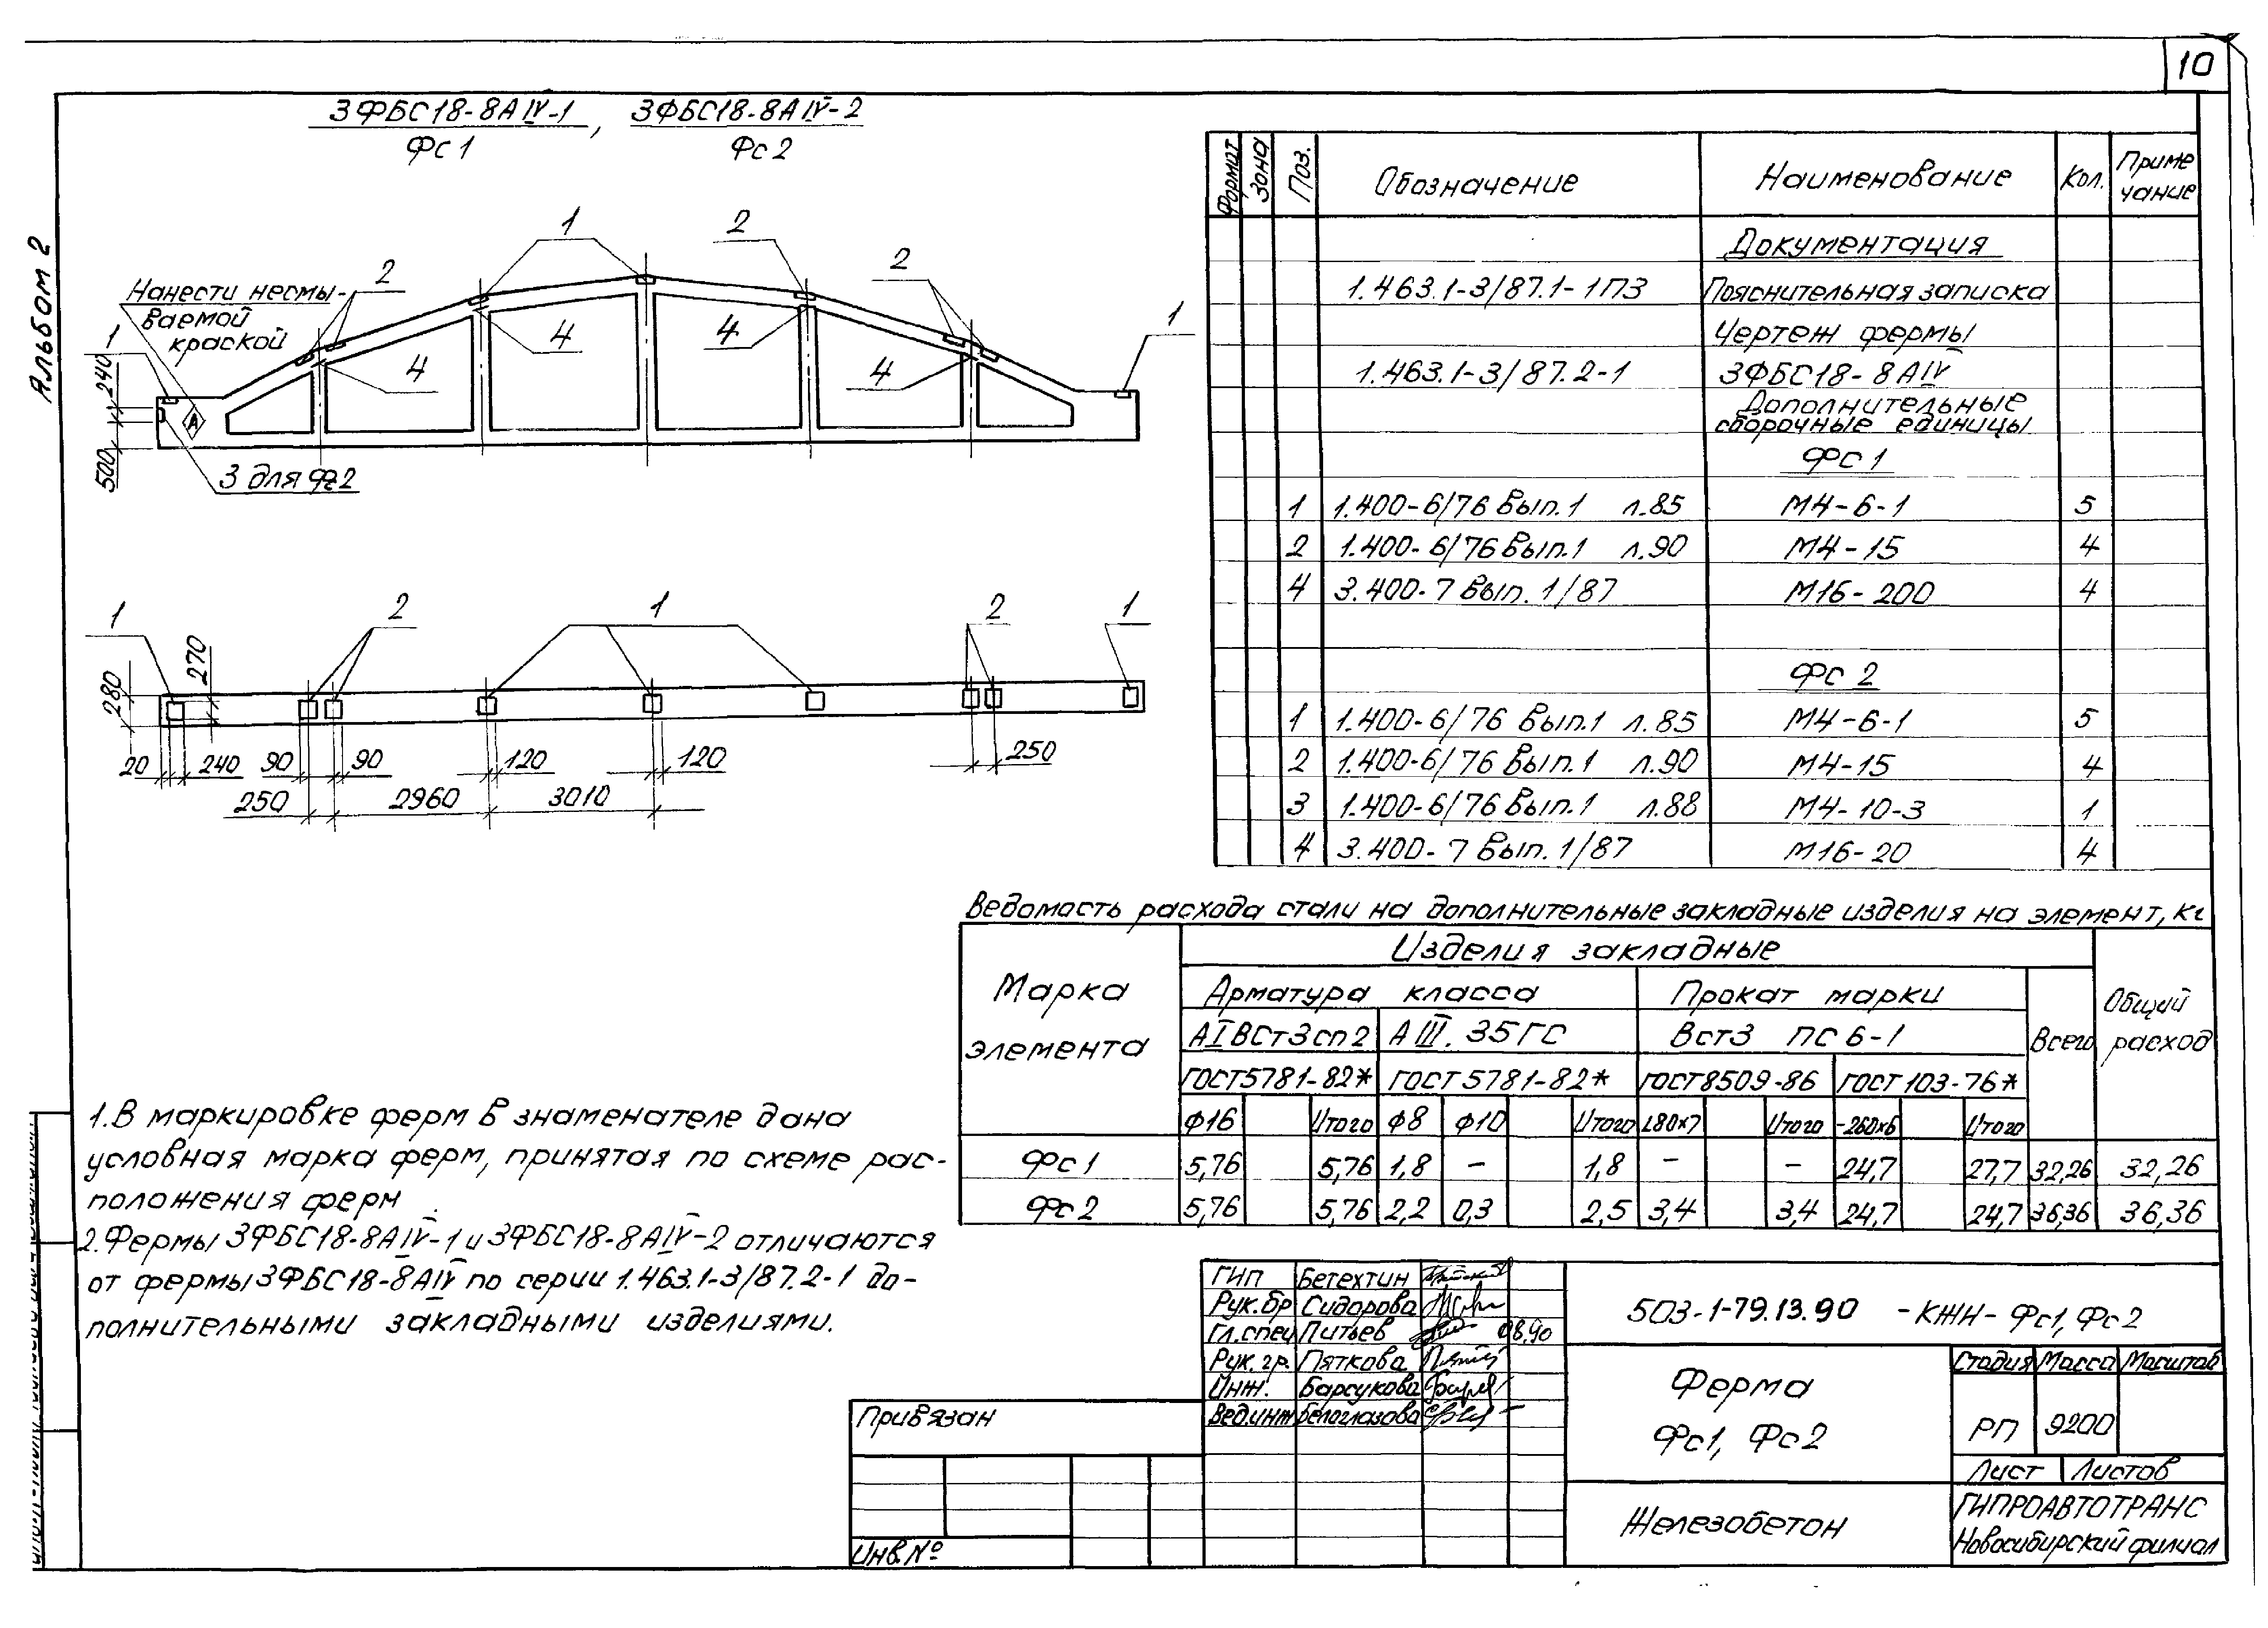 10
Альбом 2
3ФБС18-8АIV-1, 3ФБС18-8АIV-2
Фс1 Фс2
Нанести несмы-
ваемой
краской
1 2 1 2 2 1
4 4 4 4
240
500
А
3 для Фс2
1 2 1 2 1
280 270
20 240 90 90 120 120 250
250 2960 3010
Формат Зона Поз. Обозначение Наименование Кол. Приме
чание
Документация
1.463.1-3/87.1-1ПЗ Пояснительная записка
Чертеж фермы
1.463.1-3/87.2-1 3ФБС18-8АIV
Дополнительные
сборочные единицы
Фс1
1 1.400-6/76 Вып.1 л.85 М4-6-1 5
2 1.400-6/76 Вып.1 л.90 М4-15 4
4 3.400-7 Вып.1/87 М16-200 4
Фс2
1 1.400-6/76 Вып.1 л.85 М4-6-1 5
2 1.400-6/76 Вып.1 л.90 М4-15 4
3 1.400-6/76 Вып.1 л.88 М4-10-3 1
4 3.400-7 Вып.1/87 М16-20 4
Ведомость расхода стали на дополнительные закладные изделия на элемент, кг
Марка
элемента
Изделия закладные
Общий
расход
Арматура класса Прокат марки Всего
АI ВСт3сп2 АIII. 35ГС Вст3 пс6-1
ГОСТ5781-82* ГОСТ5781-82* ГОСТ8509-86 ГОСТ103-76*
ф16 Итого ф8 ф10 Итого L80х7 Итого -260х6 Итого
Фс1 5,76 5,76 1,8 – 1,8 – – 24,7 27,7 32,26 32,26
Фс2 5,76 5,76 2,2 0,3 2,5 3,4 3,4 24,7 24,7 36,36 36,36
1. В маркировке ферм в знаменателе дана
условная марка ферм, принятая по схеме рас-
положения ферм.
2. Фермы 3ФБС18-8АIV-1 и 3ФБС18-8АIV-2 отличаются
от фермы 3ФБС18-8АIV по серии 1.463.1-3/87.2-1 до-
полнительными закладными изделиями.
ГИП Бетехтин
Рук.бр Сидорова
Гл.спец Питьев 08,90
Рук.гр. Пяткова
Инж. Барсукова
Вед.инж Белоглазова
503-1-79.13.90 -КЖН-Фс1, Фс2
Ферма
Фс1, Фс2
Стадия Масса Масштаб
РП 9200
Лист Листов
Железобетон
ГИПРОАВТОТРАНС
Новосибирский филиал
Привязан
Инв.№